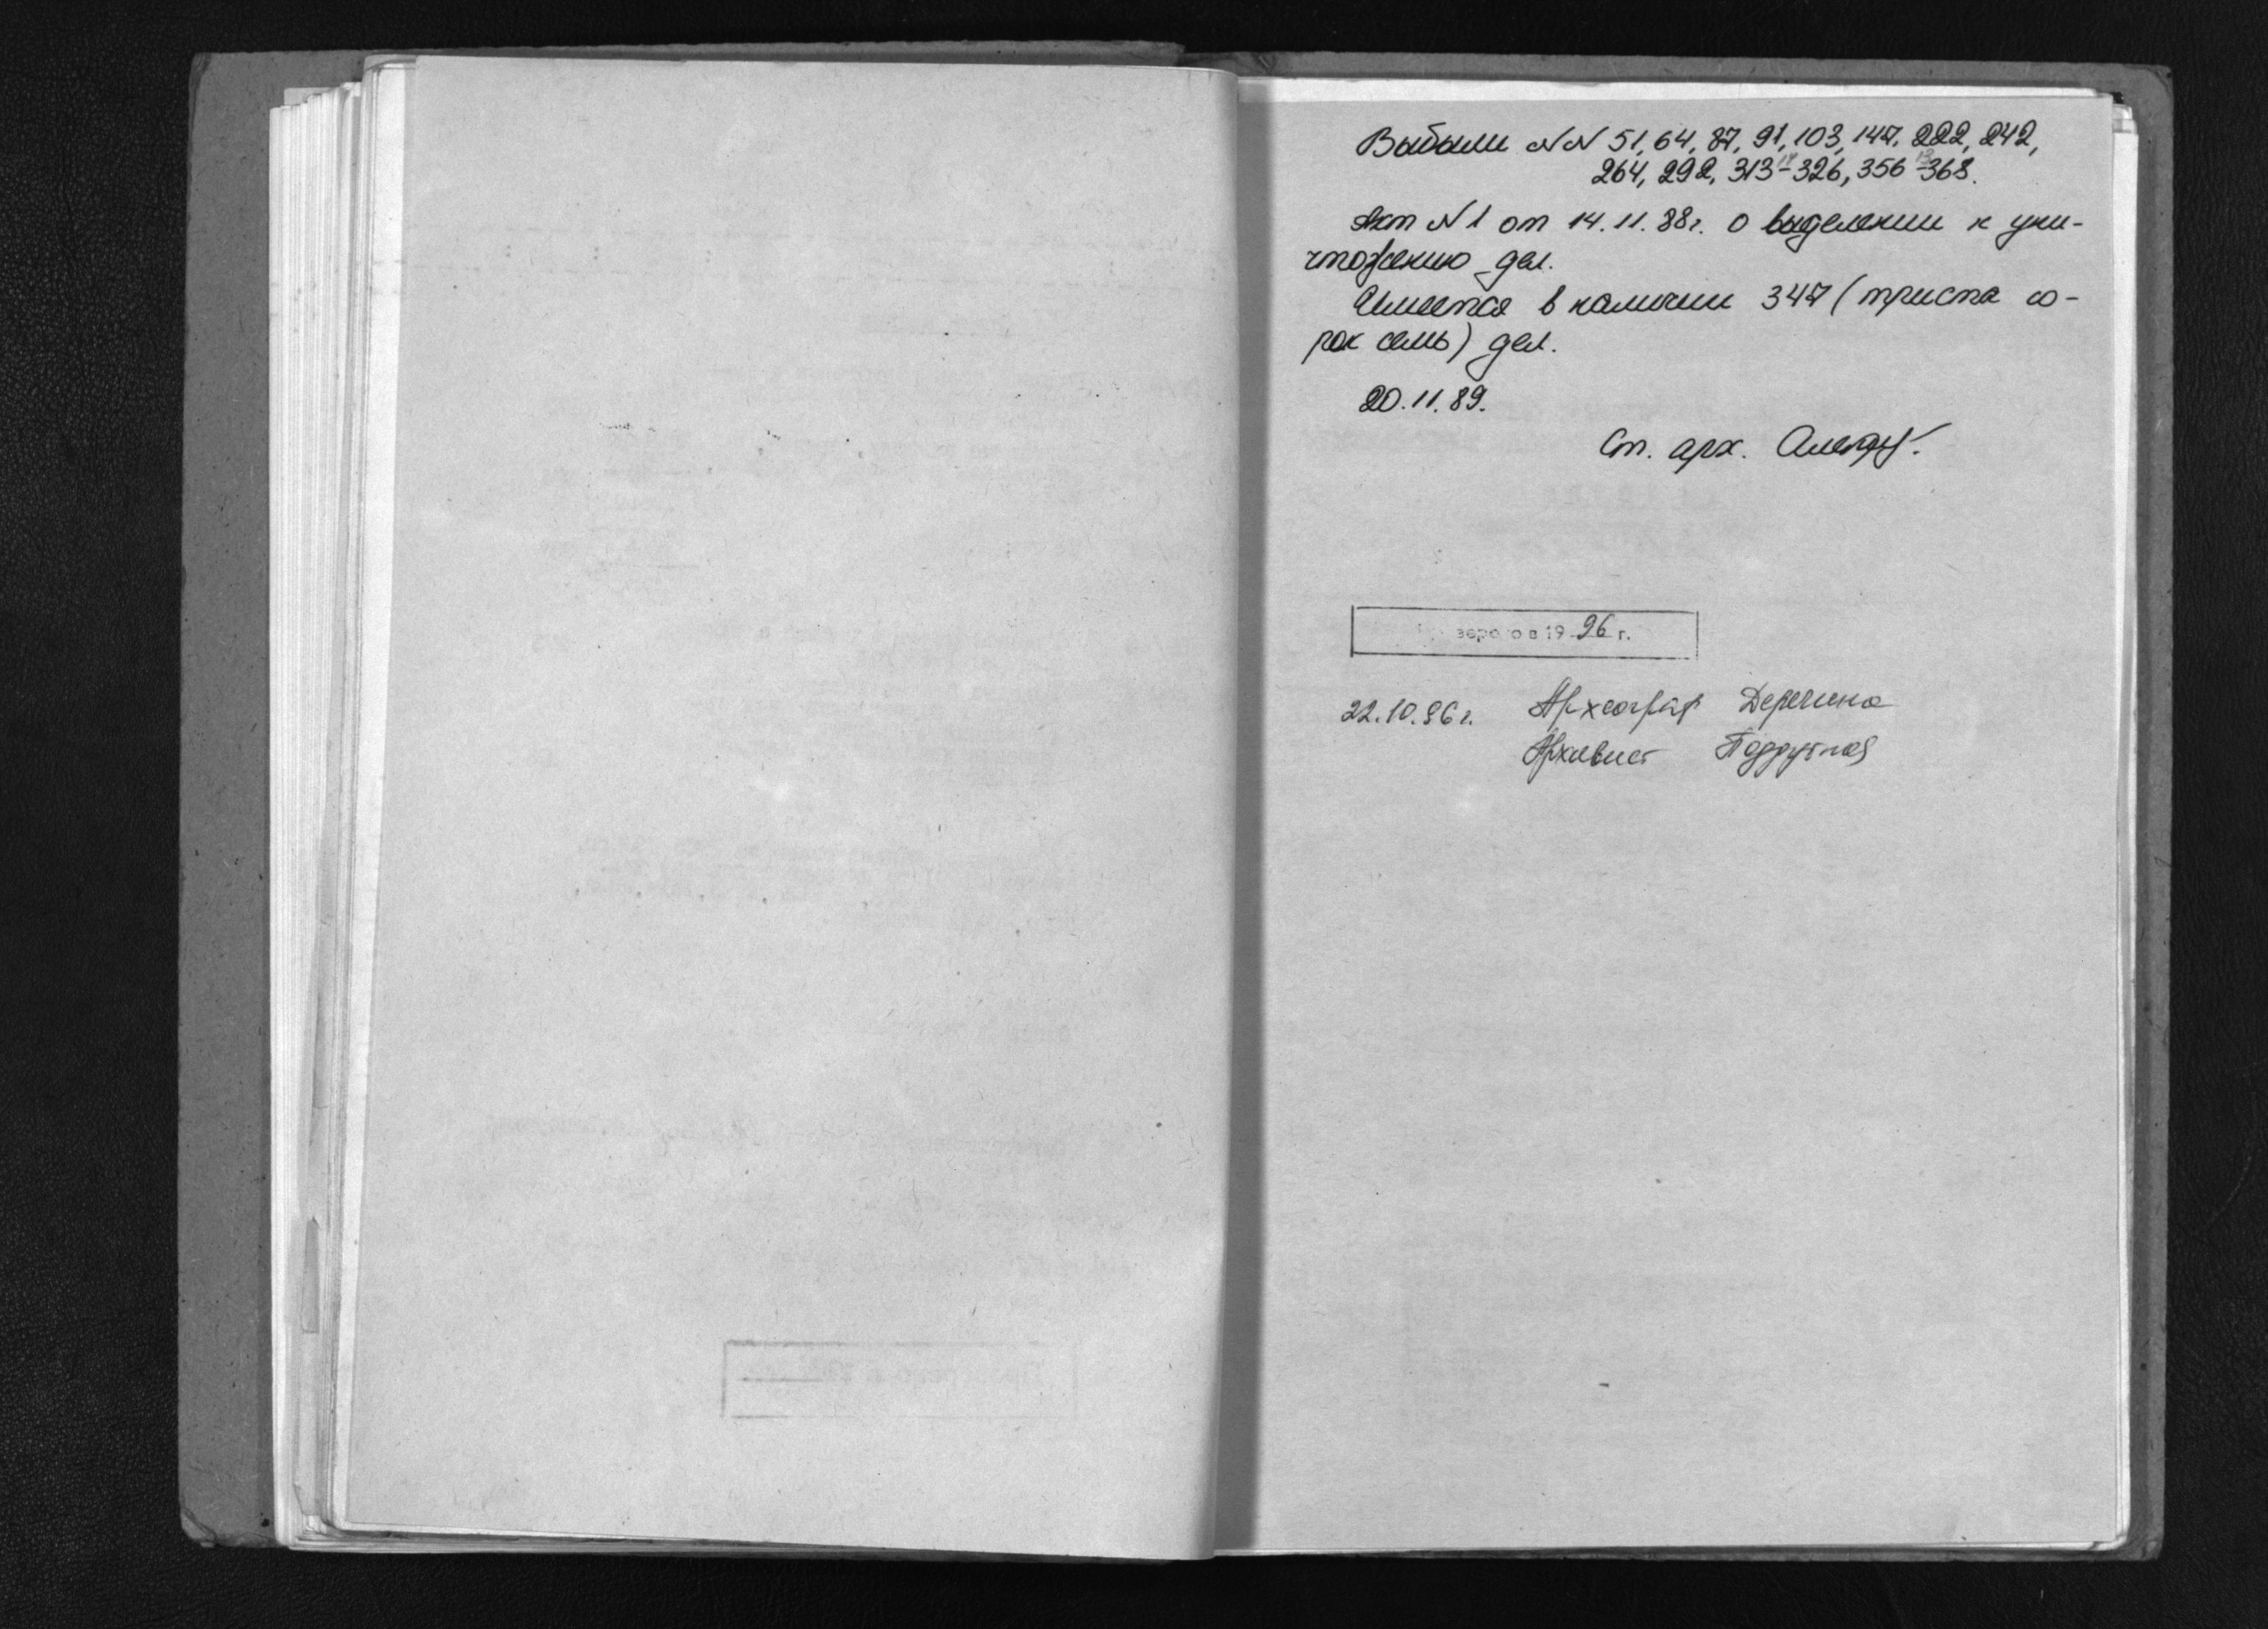 Выбыли №№ 51, 64, 87, 91, 103, 147, 222, 242,
264, 292, 313-326, 356-368.
14 13
Акт №1 от 14.11.88г. о выделении к уни-
чтожению дел.
Имеется в наличии 347 (триста со-
рок семь) дел.
20.11.89.
Ст. арх.
верено в 1996 г.
22.10.96г. Археограф Дерегина
Архивист